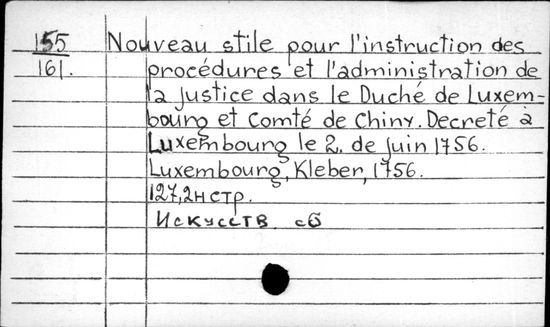 155 Nouveau stile pour l'instruction des
161. procédures et l'administration de
la justice dans le Duché de Luxem-
bourg et Comté de Chiny. Decreté à
Luxembourg le 2. de juin 1756.
Luxembourg, Kleber, 1756.
127, 2н стр.
Искусств. сб